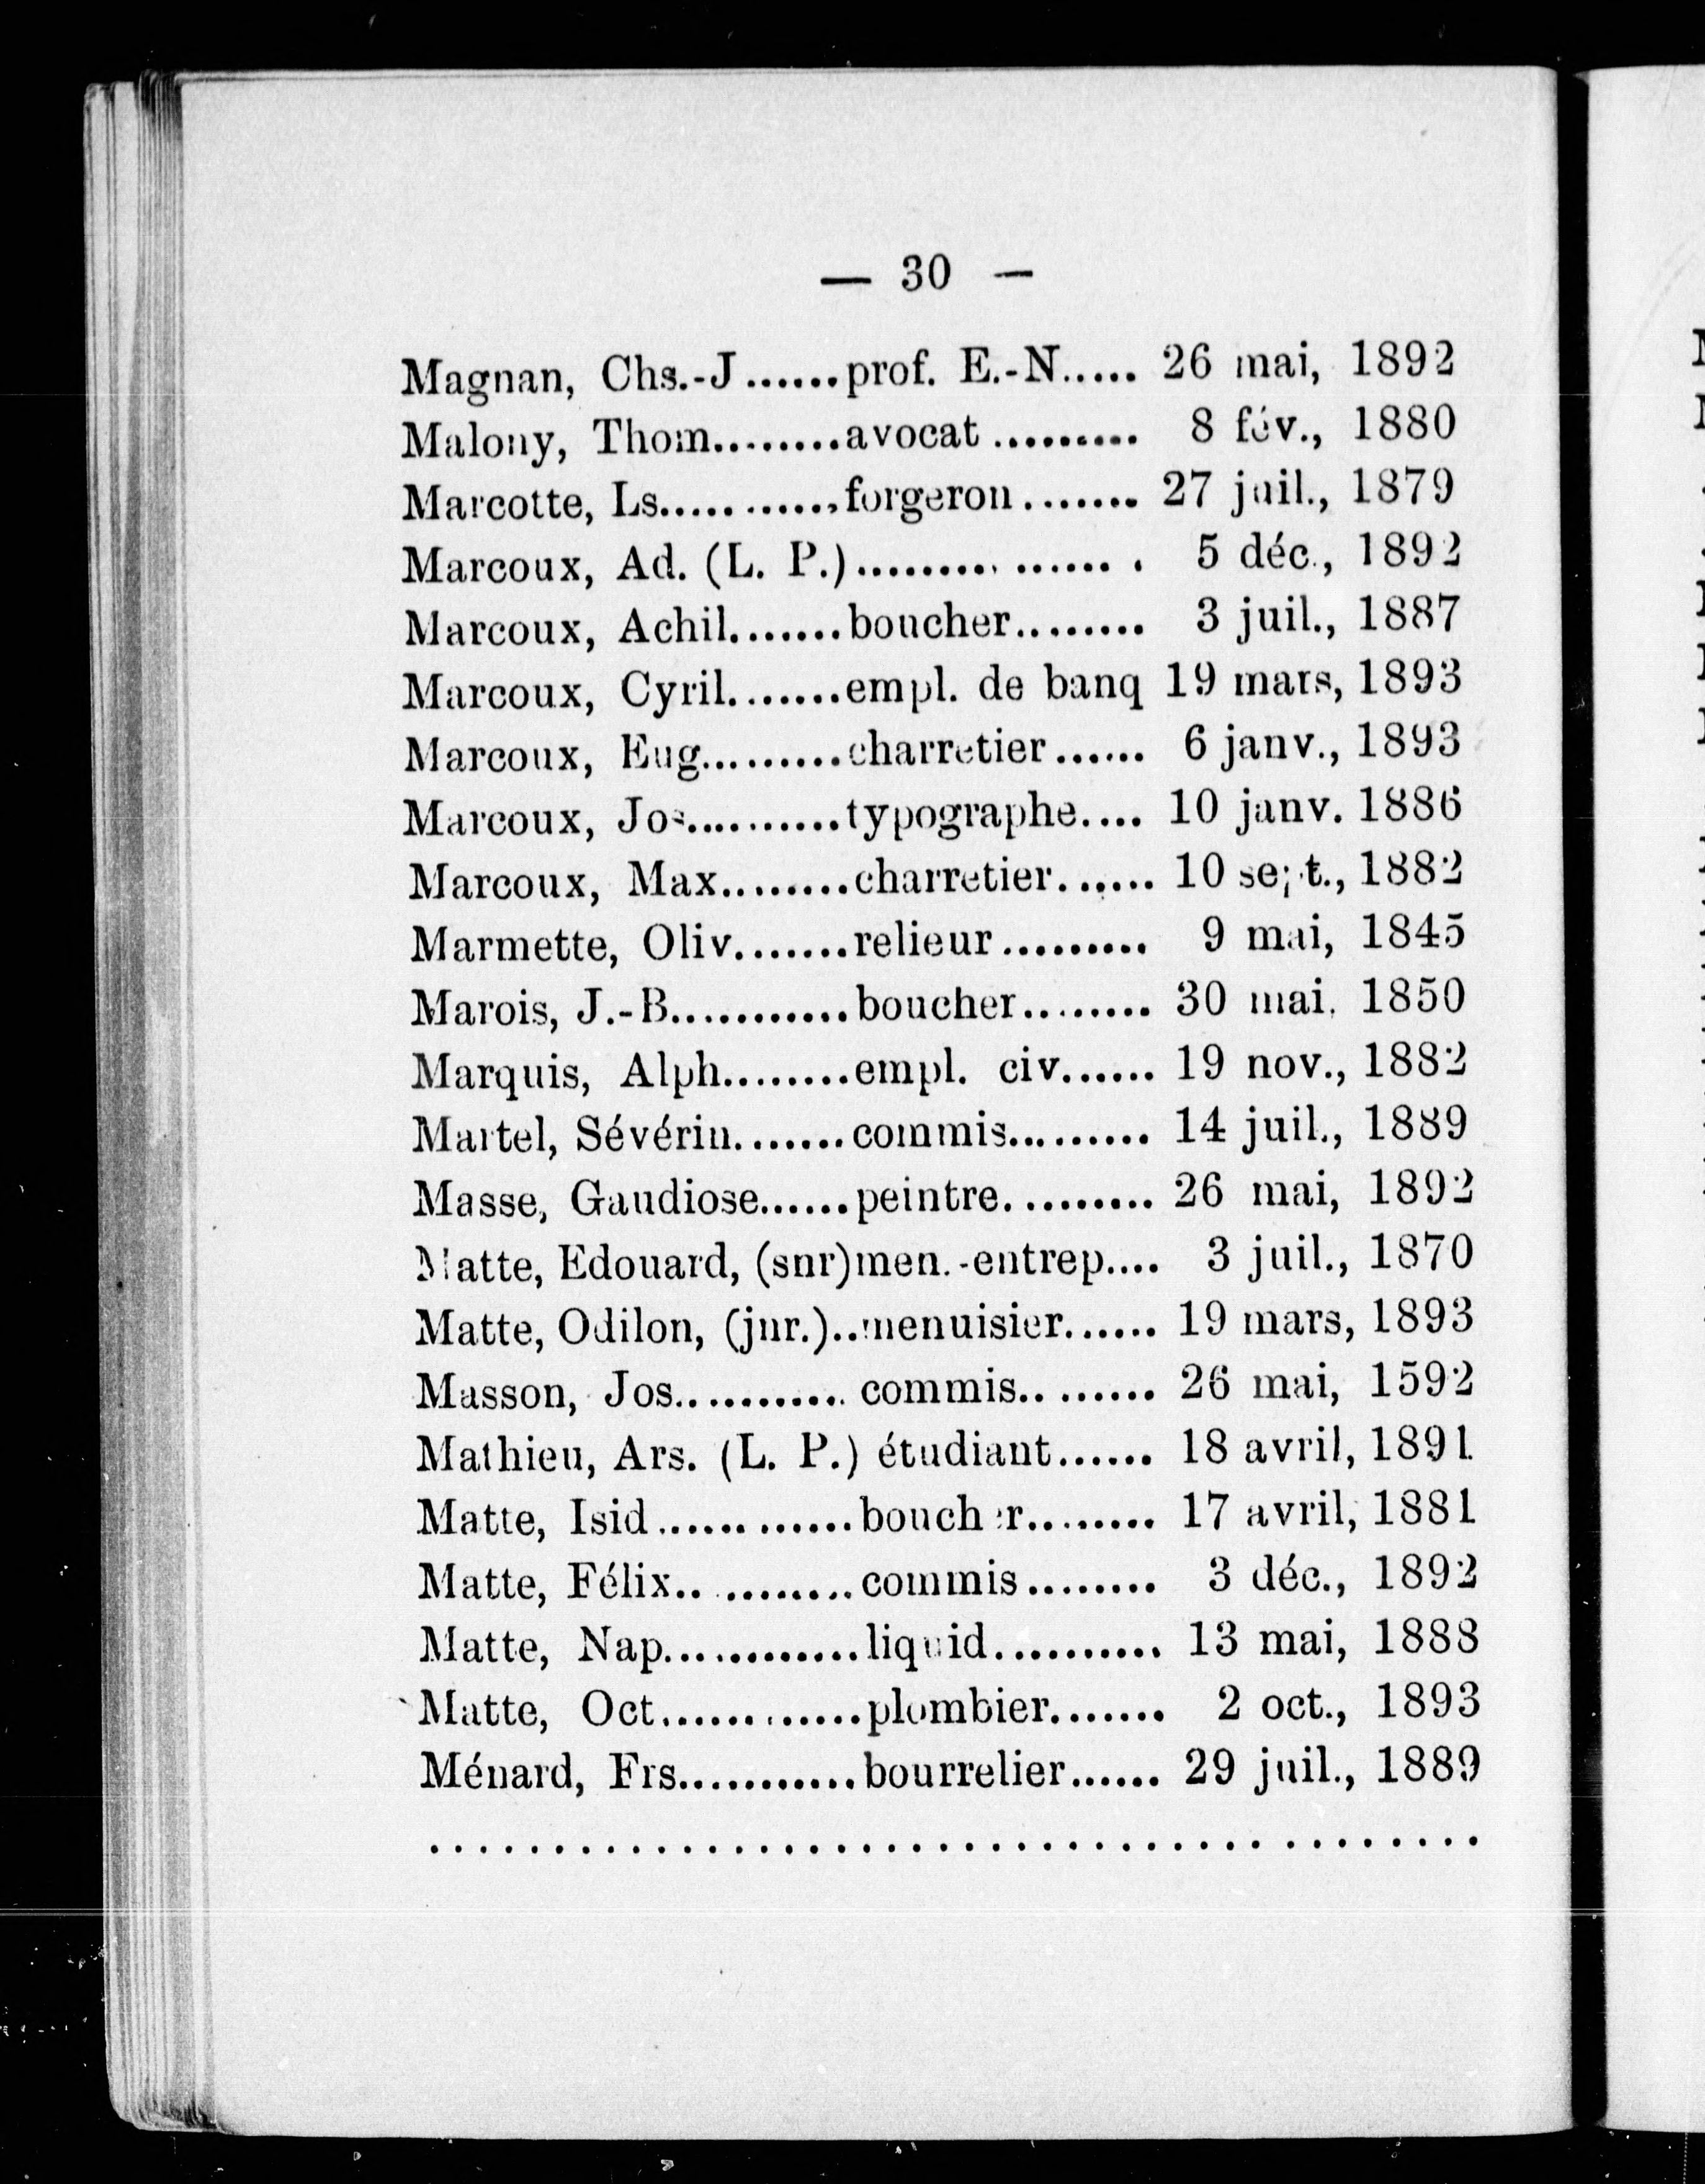 — 30 —
Magnan, Chs.-J......prof. E.-N..... 26 mai, 1892
Malony, Thom........avocat......... 8 fév., 1880
Marcotte, Ls...........forgeron....... 27 juil., 1879
Marcoux, Ad. (L. P.)................ 5 déc., 1892
Marcoux, Achil.......boucher........ 3 juil., 1887
Marcoux, Cyril.......empl. de banq 19 mars, 1893
Marcoux, Eug.........charretier...... 6 janv., 1893
Marcoux, Jos..........typographe.... 10 janv. 1886
Marcoux, Max........charretier...... 10 sept., 1882
Marmette, Oliv.......relieur......... 9 mai, 1845
Marois, J.-B...........boucher........ 30 mai, 1850
Marquis, Alph........empl. civ...... 19 nov., 1882
Martel, Sévérin.......commis......... 14 juil., 1889
Masse, Gaudiose......peintre......... 26 mai, 1892
Matte, Edouard, (snr)men.-entrep.... 3 juil., 1870
Matte, Odilon, (jnr.)..menuisier...... 19 mars, 1893
Masson, Jos........... commis........ 26 mai, 1592
Mathieu, Ars. (L. P.) étudiant...... 18 avril, 1891
Matte, Isid............boucher........ 17 avril, 1881
Matte, Félix...........commis........ 3 déc., 1892
Matte, Nap............liquid.......... 13 mai, 1888
Matte, Oct............plombier....... 2 oct., 1893
Ménard, Frs...........bourrelier...... 29 juil., 1889
..........................................